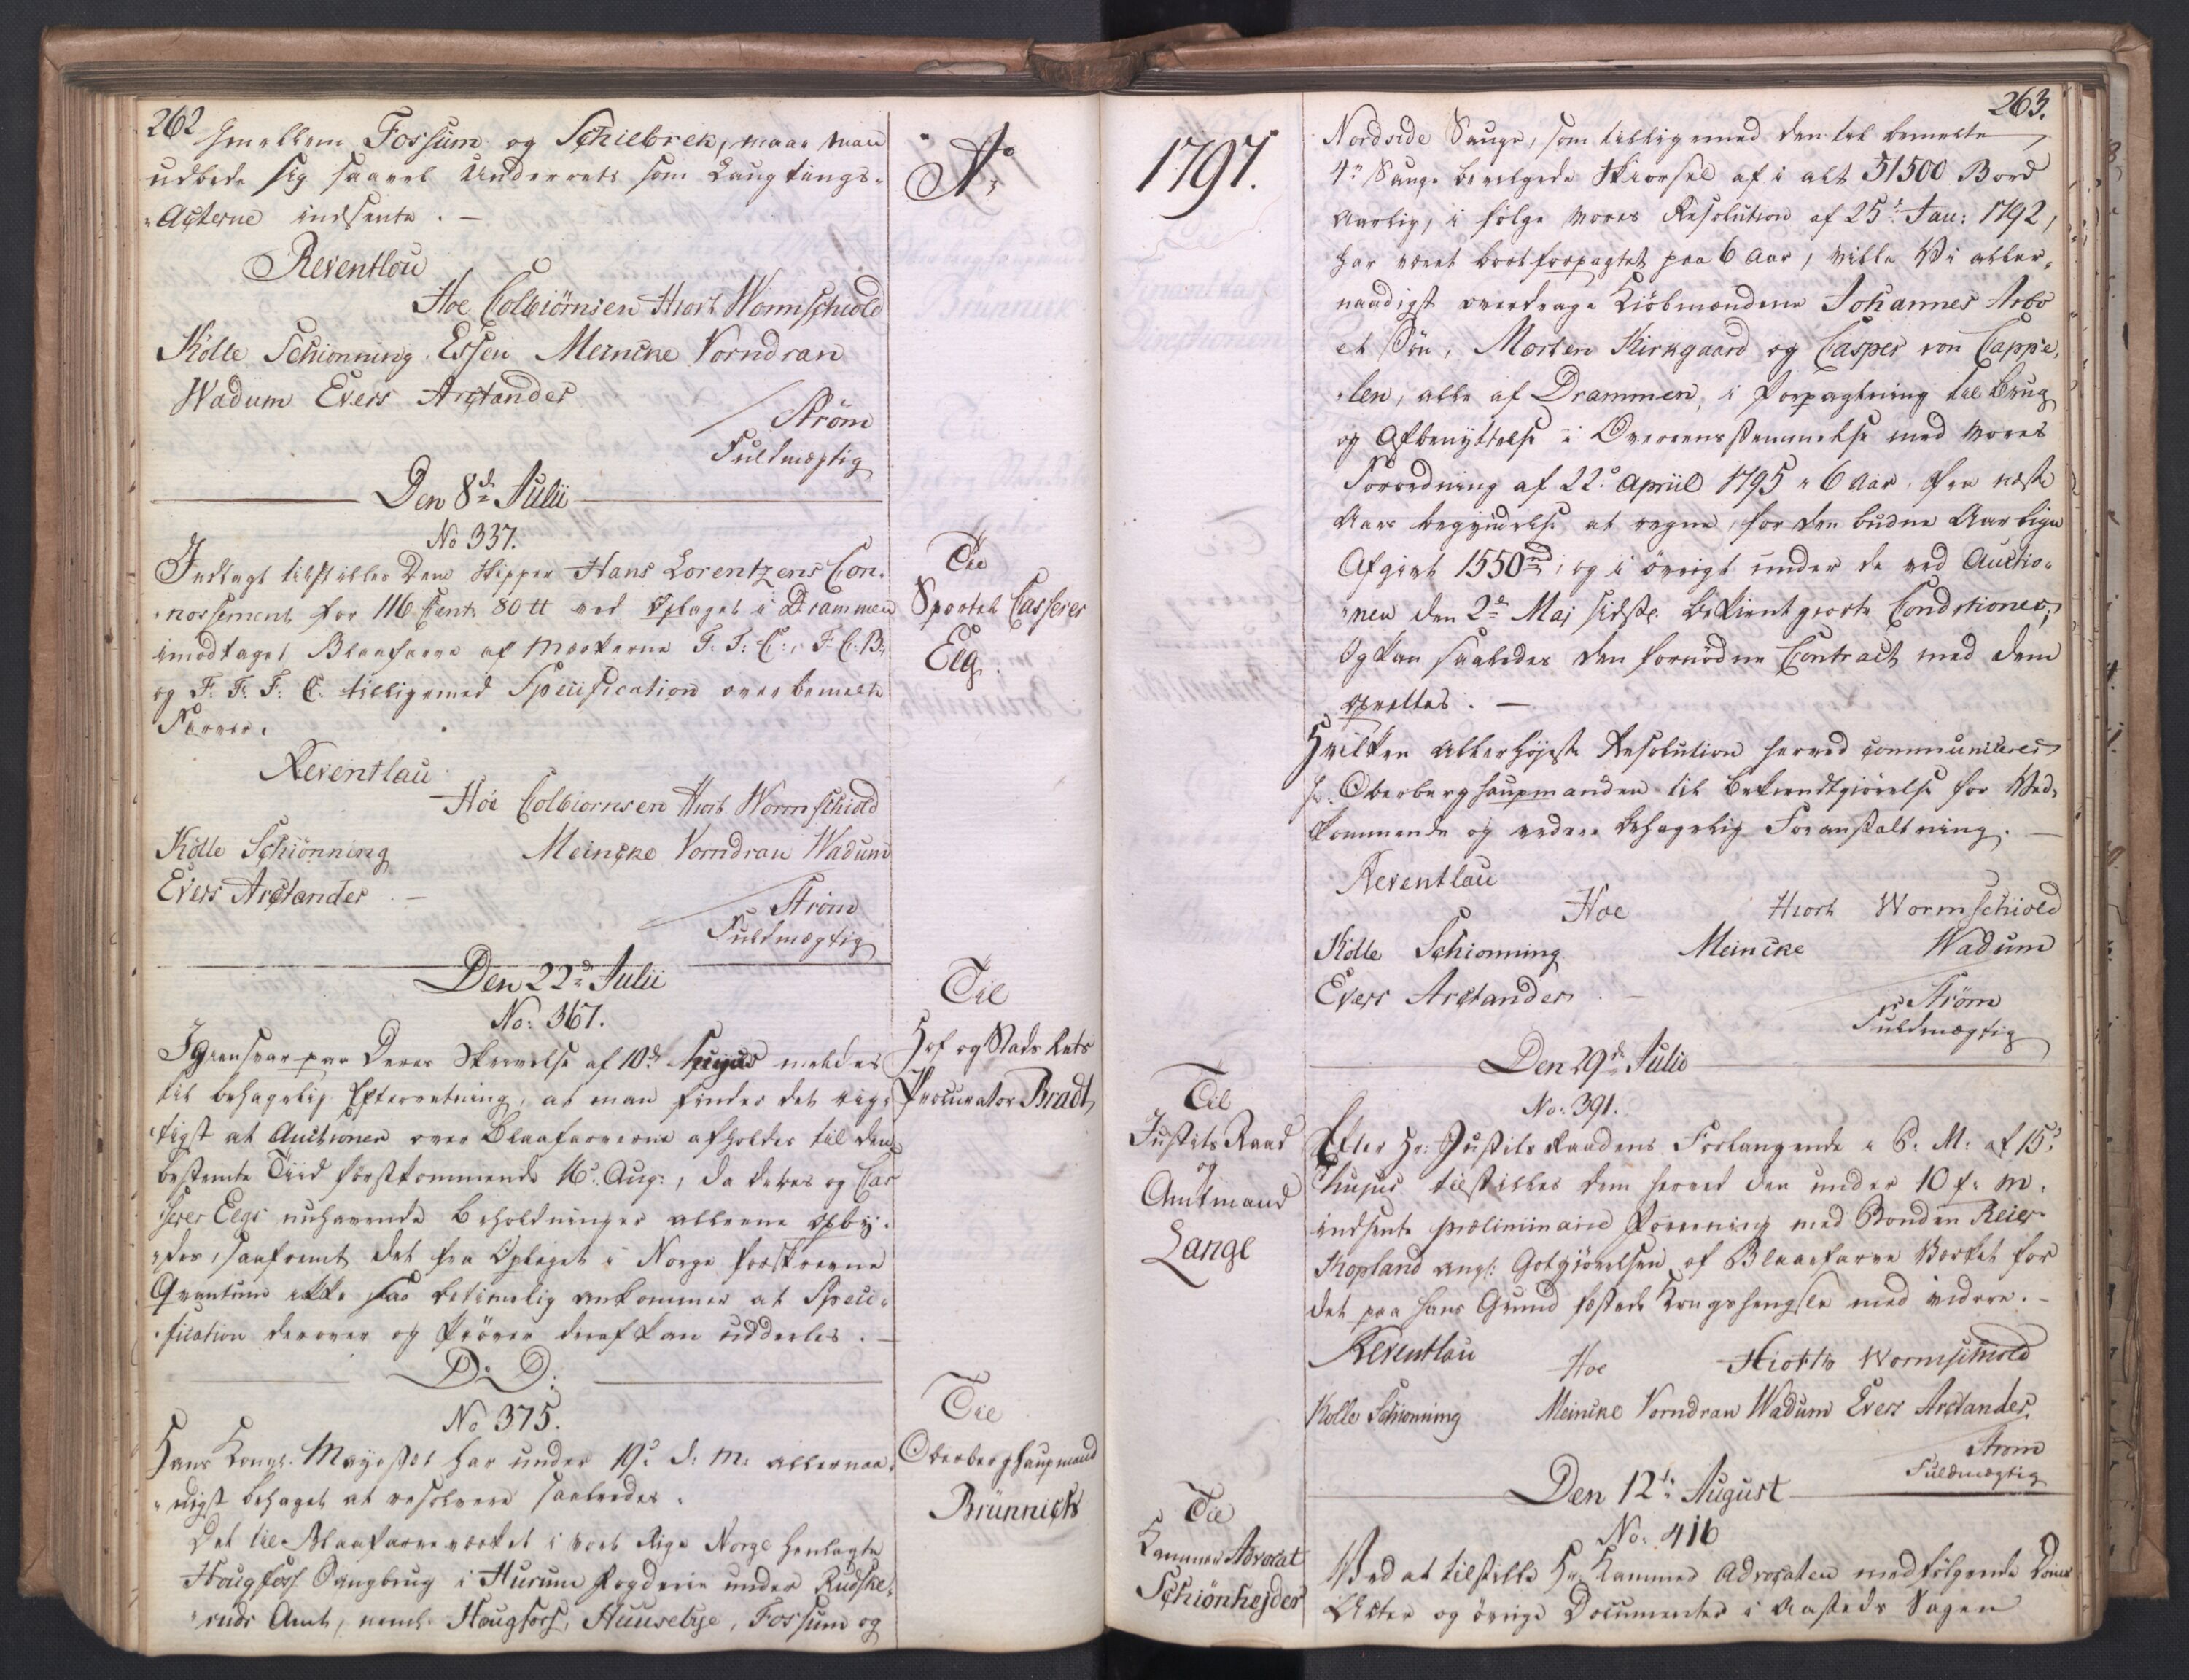 262
imellem Fossum og Schilbrek, maae man
udbede sig saavel Underrets som Laugtings-
Acterne indsente. —
Reventlou
Hoe Colbiörnsen Hiort Wormschiold
Kölle Schionning Essen Meincke Vorndran
Wadum Evers Arctander
Ström
Fuldmægtig
Den 8de Julii
No 337.
Indlagt tilstilles Dem Skipper Hans Lorentzens Con-
nossement for 116 Cent. 80 tt ved Oplaget i Drammen
imodtaget Blaafarve af Mærkerne F: F: C:, F: C: B:
og F: F: F: C. tilligemed Specification over bemelte
Farver.
Reventlau
Höe Colbiornsen Hiort Wormschiold
Kölle Schiönning Meincke Vorndran Wadum
Evers Arctander —
Ström
Fuldmægtig
Den 22de Julii
No: 367.
I giensvar paa Deres Skrivelse af 10de hujus meldes
til behagelig Efterretning, at man finder det rig-
tigst at Auctionen over Blaafarverne afholdes til den
bestemte Tiid førstkommende 16de Aug:, da deres og Cas
serer Elgs nuhavende Beholdninger allene opby-
des, saafremt det fra Oplaget i Norge forskrevne
Qvantum ikke saa betimelig ankommer at Speci-
fication derover og Pröver deraf kan uddeeles. —
D: D:
No 375.
Hans Kongl. Mayestet har under 19de d: M: allernaa-
digst behaget at resolvere saaledes:
Det til Blaafarveværket i vort Rige Norge henlagte
Hougfoss Saugbrug i Hurum Fogderie under Budske-
ruds Amt, nemlig Hougfoss, Huusebye, Fossum og
Ao
Til
Sportel Casserer
Elg.
Til
Hof og Stads Rets
Procurator Bradt
Til
Oberberghaupmand
Brünnich
1797.
Til
Justits Raad
og
Amtmand
Lange
Til
Kammer Advocat
Schiönheyder
263.
Nordside Sauge, som tilligemed den til bemelte
4re Sauge bevilgede Skiørsel af i alt 31500 Bord
Aarlig, i følge Vores Resolution af 25de Jan: 1792,
har været bortforpagtet paa 6 Aar, ville Vi aller-
naadigst overdrage Kiöbmændene Johannes Arbo
et Sön, Morten Kirkgaard og Casper von Cappe-
len, alle af Drammen, i Forpagtning til Brug
og Afbenyttelse i Overeensstemmelse med Vores
Forordning af 22de Apriil 1795 i 6 Aar, fra næste
Aars begyndelse at regne, for den budne Aarlige
Afgivt 1550 rd; og i övrigt under de ved Auctio-
nen den 2de Maj sidste bekientgiorte Conditioner;
Og kan saaledes den fornödne Contract med dem
oprettes. —
Hvilken allerhöyeste Resolution herved communiceres
Hr. Oberberghaupmanden til bekiendtgiörelse for Ved-
kommende og videre behagelig Foranstaltning. —
Reventlau
Hoe Hiort Wormschiold
Kölle Schionning Meincke Wadum
Evers Arctander —
Ström
Fuldmægtig
Den 29de Julii
No: 391.
Efter Hr: Justits Raadens Forlangende i P: M: af 15de
hujus tilstilles dem herved den under 10 f: M:
indsente præliminaire Forening med Bonden Reier
Kopland ang: Godtgiörelsen af Blaafarve Værket for
det paa hans Grund
Reventlau
Hoe Hiorth Wormschiold
Kolle Schionning Meincke Vorndran Wadum Evers Arctander
Strom
Fuldmægtig
Den 12te August
No: 416
Ved at tilstille Hr. Kammer Advocaten medfölgende
Acter og övrige Documenter i Aasteds Sagen